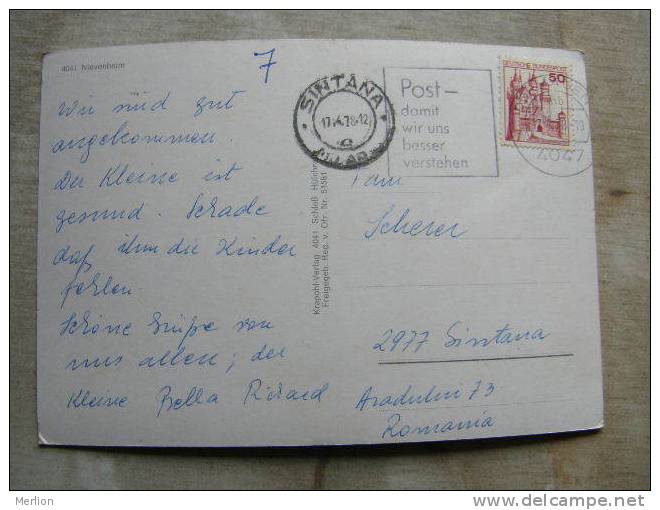 4041 Nievenheim
7
Wir sind gut
angekommen.
Der Kleine ist
gesund. Schade
daß ihm die Kinder
fehlen.
Schöne Grüße von
uns allen, der
Kleine Bella Richard
Krapohl-Verlag 4041 Schloß Hülchrath
Freigegeb. Reg. v. Dfr. Nr. 51581
SINTANA
17.4.78-12
Post-
damit
wir uns
besser
verstehen
DEUTSCHE BUNDESPOST
50
4047
Fam
Scherer
2977 Sintana
Aradului 73
Romania
Merlion
http://www.delcampe.net